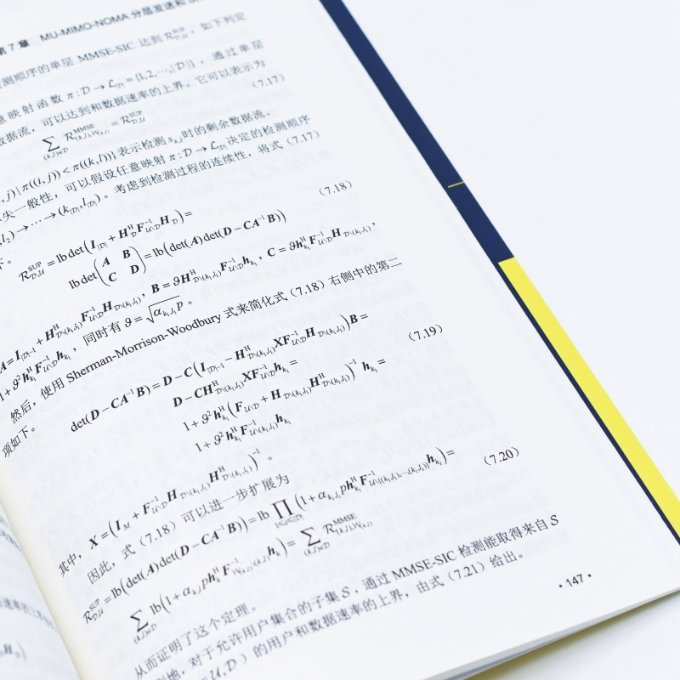 第 7 章 MU-MIMO-NOMA 分层发送和
检测顺序的单层 MMSE-SIC 达到 R^SUP_{D,U}，如下列定
意映射函数 π: D → L_{|D|} = {1,2,…,|D|}，通过单层
数据流，可以达到和数据速率的上界。它可以表示为
∑_{(k,l)∈D} R^MMSE_{(k,l),W_{k,l}} = R^SUP_{D,U} （7.17）
,j)|π((i,j)) < π((k,l))} 表示检测 s_{k,l} 时的剩余数据流。
失一般性，可以假设任意映射 π: D → L_{|D|} 决定的检测顺序
l_2) → ⋯ → (k_{|D|}, l_{|D|})。考虑到检测过程的连续性，将式（7.17）
下。
R^SUP_{D,U} = lb det(I_{|D|} + H_D^H F_{U\D}^{-1} H_D) = （7.18）
lb det(A B C D) = lb(det(A)det(D − CA^{-1}B))
A = I_{|D|-1} + H^H_{D\(k_1,l_1)} F^{-1}_{U\D} H_{D\(k_1,l_1)}，B = ϑH^H_{D\(k_1,l_1)} F^{-1}_{U\D} h_{k_1}，C = ϑh^H_{k_1} F^{-1}_{U\D} H_{D\(k_1,l_1)}，
1 + ϑ²h^H_{k_1} F^{-1}_{U\D} h_{k_1}，同时有 ϑ = √(α_{k_1,l_1} p)。
然后，使用 Sherman-Morrison-Woodbury 式来简化式（7.18）右侧中的第二
项如下。
det(D − CA^{-1}B) = D − C(I_{|D|-1} − H^H_{D\(k_1,l_1)} XF^{-1}_{U\D} H_{D\(k_1,l_1)})B = （7.19）
D − CH^H_{D\(k_1,l_1)} XF^{-1}_{U\D} h_{k_1} =
1 + ϑ²h^H_{k_1} (F_{U\D} + H_{D\(k_1,l_1)} H^H_{D\(k_1,l_1)})^{-1} h_{k_1} =
1 + ϑ²h^H_{k_1} F^{-1}_{U\(k_1,l_1)} h_{k_1}
其中，X = (I_M + F^{-1}_{U\D} H_{D\(k_1,l_1)} H^H_{D\(k_1,l_1)})^{-1}。
因此，式（7.18）可以进一步扩展为
R^SUP_{D,U} = lb(det(A)det(D − CA^{-1}B)) = lb ∏ (1 + α_{k_i,l_i} p h^H_{k_i} F^{-1} h_{k_i}) = （7.20）
∑_{(k,l)∈D} lb(1 + α_{k,l} p h_k^H F^{-1} h_k) = ∑_{(k,l)∈D} R^MMSE_{(k,l),W_{k,l}}
从而证明了这个定理。
地，对于允许用户集合的子集 S，通过 MMSE-SIC 检测能取得来自 S
= U,D）的用户和数据速率的上界，由式（7.21）给出。
·147·